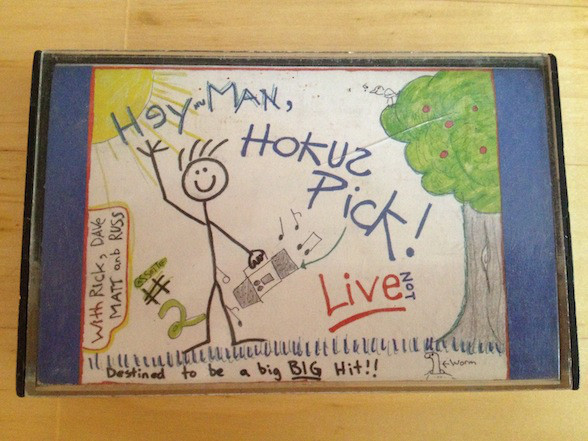 Hey MAN,
HOKUS
Pick!
Live NOT
With RICK, DAVE
MATT and RUSS
# 2
Destined to be a big BIG Hit!!
←Worm